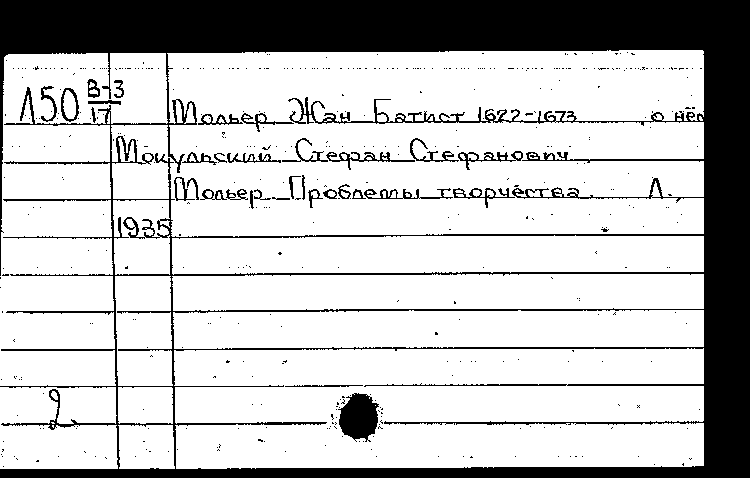 Л50 В-3/17 Мольер Жан Батист 1622-1673 о нём
Мокульский Стефан Стефанович
Мольер. Проблемы творчества. Л.,
1935
2